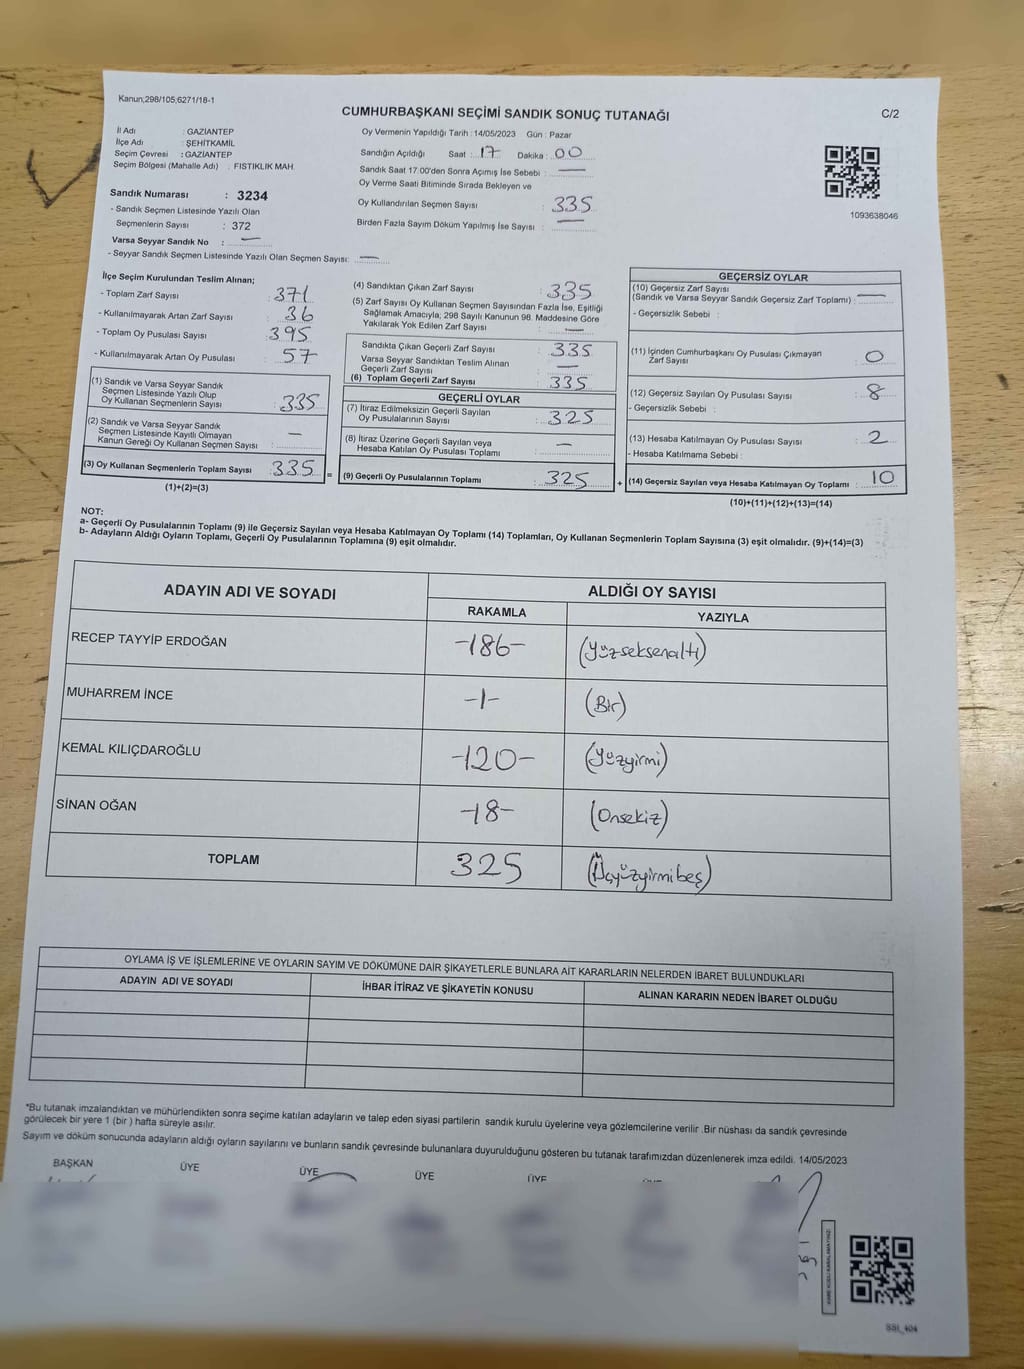 Kanun;298/105,6271/18-1
CUMHURBAŞKANI SEÇİMİ SANDIK SONUÇ TUTANAĞI
C/2
İl Adı : GAZİANTEP
İlçe Adı : ŞEHİTKAMİL
Seçim Çevresi : GAZİANTEP
Seçim Bölgesi (Mahalle Adı) : FISTIKLIK MAH.
Sandık Numarası : 3234
- Sandık Seçmen Listesinde Yazılı Olan
Seçmenlerin Sayısı : 372
Varsa Seyyar Sandık No : —
- Seyyar Sandık Seçmen Listesinde Yazılı Olan Seçmen Sayısı: —
Oy Vermenin Yapıldığı Tarih : 14/05/2023 Gün : Pazar
Sandığın Açıldığı Saat : 17 Dakika : 00
Sandık Saat 17:00'den Sonra Açımış İse Sebebi : —
Oy Verme Saati Bitiminde Sırada Bekleyen ve
Oy Kullandırılan Seçmen Sayısı : 335
Birden Fazla Sayım Döküm Yapılmış İse Sayısı : —
1093638046
İlçe Seçim Kurulundan Teslim Alınan;
- Toplam Zarf Sayısı : 371
- Kullanılmayarak Artan Zarf Sayısı : 36
- Toplam Oy Pusulası Sayısı : 395
- Kullanılmayarak Artan Oy Pusulası : 57
(1) Sandık ve Varsa Seyyar Sandık
Seçmen Listesinde Yazılı Olup
Oy Kullanan Seçmenlerin Sayısı : 335
(2) Sandık ve Varsa Seyyar Sandık
Seçmen Listesinde Kayıtlı Olmayan
Kanun Gereği Oy Kullanan Seçmen Sayısı : —
(3) Oy Kullanan Seçmenlerin Toplam Sayısı : 335 =
(1)+(2)=(3)
(4) Sandıktan Çıkan Zarf Sayısı : 335
(5) Zarf Sayısı Oy Kullanan Seçmen Sayısından Fazla İse, Eşitliği
Sağlamak Amacıyla; 298 Sayılı Kanunun 98. Maddesine Göre
Yakılarak Yok Edilen Zarf Sayısı : —
Sandıkta Çıkan Geçerli Zarf Sayısı : 335
Varsa Seyyar Sandıktan Teslim Alınan
Geçerli Zarf Sayısı : —
(6) Toplam Geçerli Zarf Sayısı : 335
GEÇERLİ OYLAR
(7) İtiraz Edilmeksizin Geçerli Sayılan
Oy Pusulalarının Sayısı : 325
(8) İtiraz Üzerine Geçerli Sayılan veya
Hesaba Katılan Oy Pusulası Toplamı : —
(9) Geçerli Oy Pusulalarının Toplamı : 325 +
GEÇERSİZ OYLAR
(10) Geçersiz Zarf Sayısı
(Sandık ve Varsa Seyyar Sandık Geçersiz Zarf Toplamı) : —
- Geçersizlik Sebebi :
(11) İçinden Cumhurbaşkanı Oy Pusulası Çıkmayan
Zarf Sayısı : 0
(12) Geçersiz Sayılan Oy Pusulası Sayısı : 8
- Geçersizlik Sebebi :
(13) Hesaba Katılmayan Oy Pusulası Sayısı : 2
- Hesaba Katılmama Sebebi :
(14) Geçersiz Sayılan veya Hesaba Katılmayan Oy Toplamı : 10
(10)+(11)+(12)+(13)=(14)
NOT:
a- Geçerli Oy Pusulalarının Toplamı (9) ile Geçersiz Sayılan veya Hesaba Katılmayan Oy Toplamı (14) Toplamları, Oy Kullanan Seçmenlerin Toplam Sayısına (3) eşit olmalıdır. (9)+(14)=(3)
b- Adayların Aldığı Oyların Toplamı, Geçerli Oy Pusulalarının Toplamına (9) eşit olmalıdır.
ADAYIN ADI VE SOYADI
ALDIĞI OY SAYISI
RAKAMLA YAZIYLA
RECEP TAYYİP ERDOĞAN -186- (Yüzseksenaltı)
MUHARREM İNCE -1- (Bir)
KEMAL KILIÇDAROĞLU -120- (Yüzyirmi)
SİNAN OĞAN -18- (Onsekiz)
TOPLAM 325 (Üçyüzyirmibeş)
OYLAMA İŞ VE İŞLEMLERİNE VE OYLARIN SAYIM VE DÖKÜMÜNE DAİR ŞİKAYETLERLE BUNLARA AİT KARARLARIN NELERDEN İBARET BULUNDUKLARI
ADAYIN ADI VE SOYADI İHBAR İTİRAZ VE ŞİKAYETİN KONUSU ALINAN KARARIN NEDEN İBARET OLDUĞU
*Bu tutanak imzalandıktan ve mühürlendikten sonra seçime katılan adayların ve talep eden siyasi partilerin sandık kurulu üyelerine veya gözlemcilerine verilir .Bir nüshası da sandık çevresinde
görülecek bir yere 1 (bir ) hafta süreyle asılır.
Sayım ve döküm sonucunda adayların aldığı oyların sayılarını ve bunların sandık çevresinde bulunanlara duyurulduğunu gösteren bu tutanak tarafımızdan düzenlenerek imza edildi. 14/05/2023
BAŞKAN ÜYE ÜYE ÜYE ÜYE
KARE KODU KARALAMAYINIZ!
SSI_404